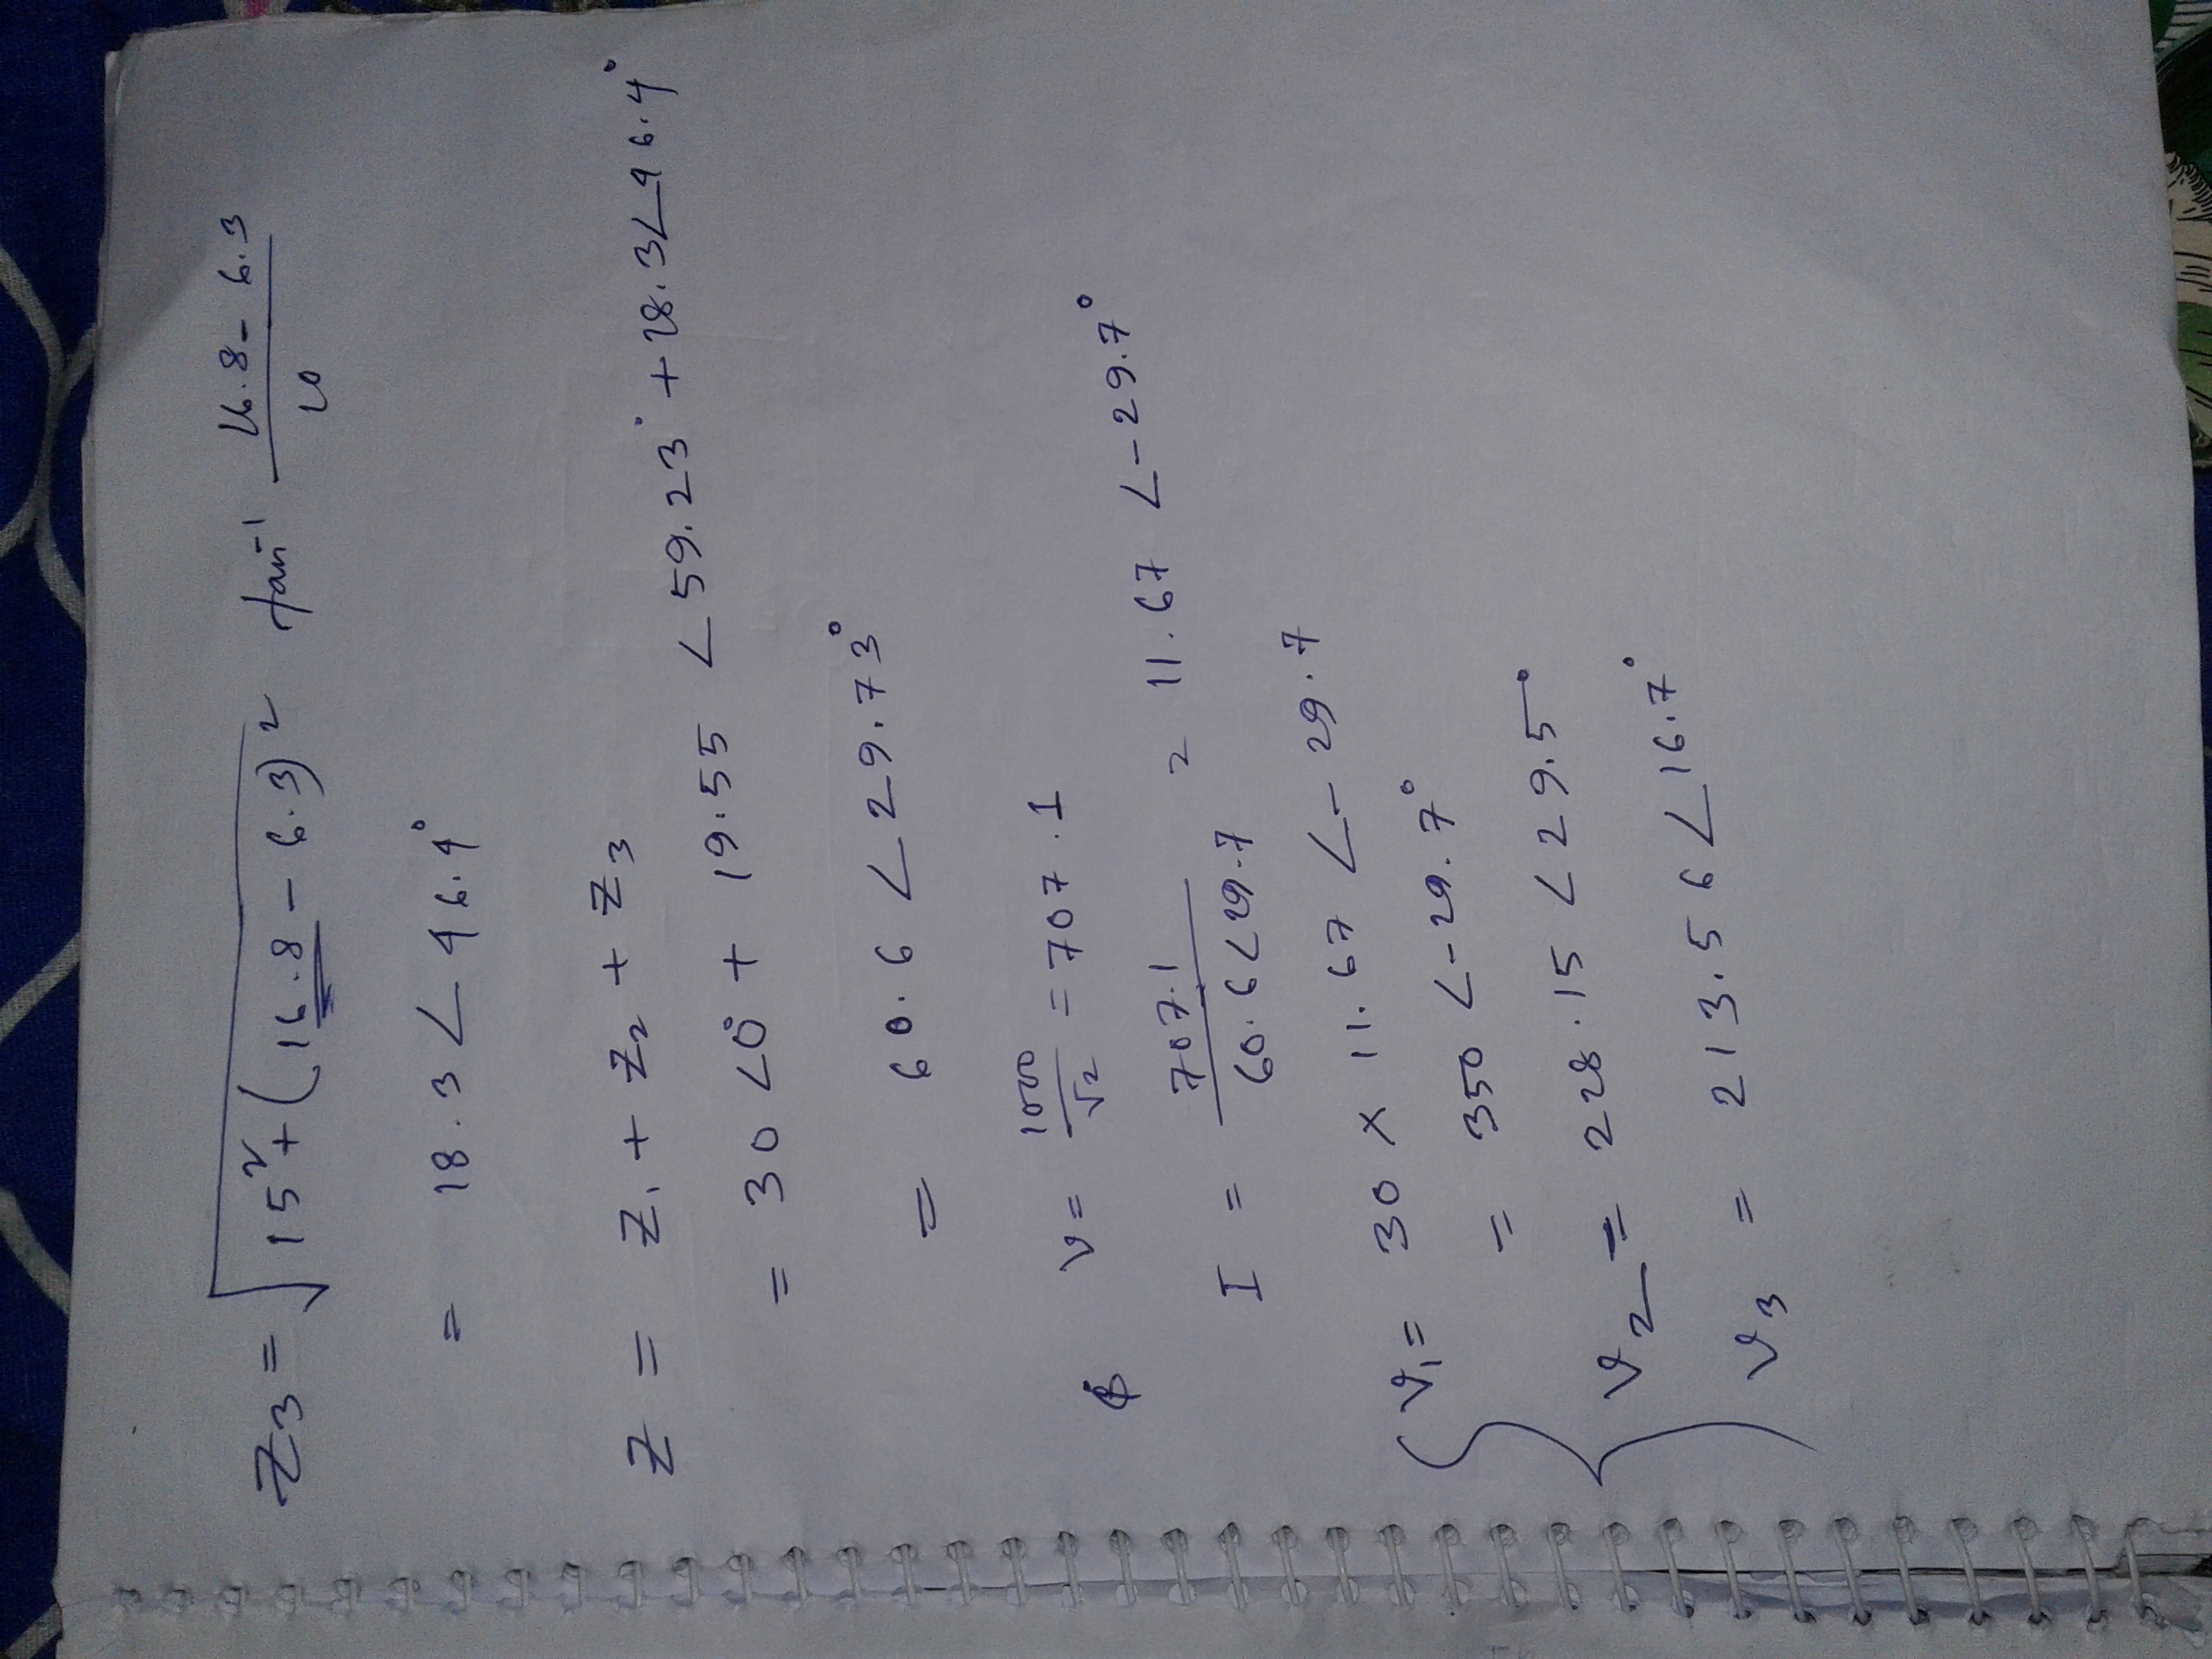 Z₃ = √(15² + (16.8 - 6.3)²) tan⁻¹ (16.8 - 6.3)/10
= 18.3 ∠ 46.4°
Z = Z₁ + Z₂ + Z₃
= 30 ∠0° + 19.55 ∠59.23° + 18.3∠46.4°
= 60.6 ∠29.73°
V = 1000/√2 = 707.1
I = 707.1/(60.6∠29.7) = 11.67 ∠-29.7°
V₁ = 30 × 11.67 ∠-29.7
= 350 ∠-29.7°
V₂ = 228.15 ∠29.5°
V₃ = 213.56∠16.7°